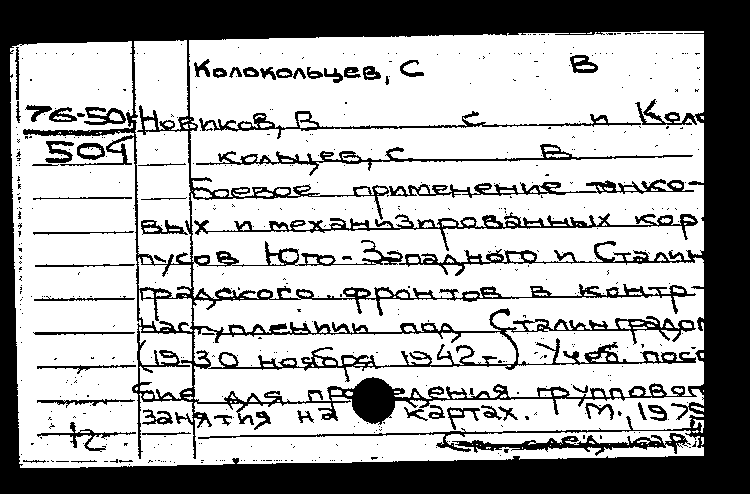 Колокольцев, С В
76-50к Новиков, В с и Коло
504 кольцев, С. В.
Боевое применение танко-
вых и механизированных кор-
пусов Юго-Западного и Сталин
градского фронтов в контр-
наступлении под Сталинградом
(19-30 ноября 1942г.). Учеб. посо
бие для проведения группового
занятия на картах. М., 1975
См. след. кар